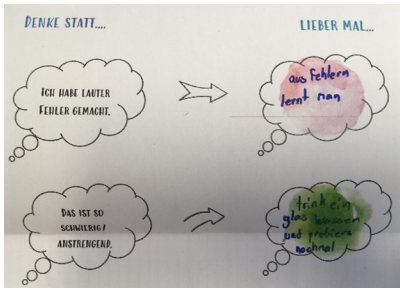 DENKE STATT....
LIEBER MAL...
ICH HABE LAUTER
FEHLER GEMACHT.
aus Fehlern
lernt man
DAS IST SO
SCHWIERIG/
ANSTRENGEND.
trink ein
glas wasser
und probiers
nochmal